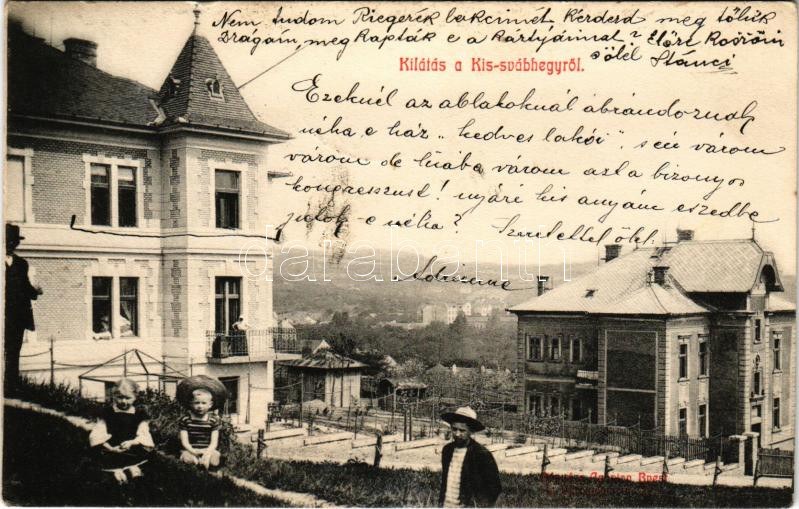 Nem tudom Riegerék lakcimét Kérderd meg tőlük
Drágám, meg kapták e a kártyáimat? Előre köszöni
ölel Stánci
Kilátás a Kis-svábhegyről.
Ezeknél az ablakoknál ábrándoznak
néha, e ház „kedves lakói", s én várom
várom de hiába várom azt a bizonyos
kongresszust! nyári kis anyám eszedbe
jutok-e néha? Szeretettel ölel:
Adrienne
darabanth